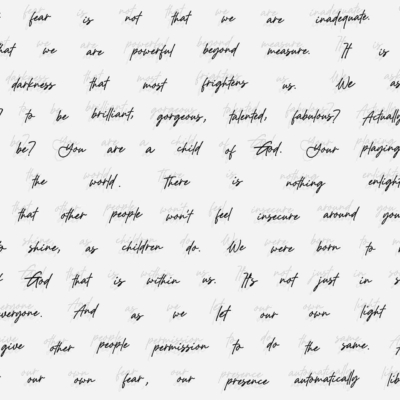 fear is not that we are inadequate.
that we are powerful beyond measure. It is
darkness that most frightens us. We as
? to be brilliant, gorgeous, talented, fabulous? Actually
be? You are a child of God. Your playing
the world. There is nothing enlight
that other people won't feel insecure around you
shine, as children do. We were born to
God that is within us. It's not just in s
veryone. And as we let our own light
give other people permission to do the same. A
our own fear, our presence automatically lib